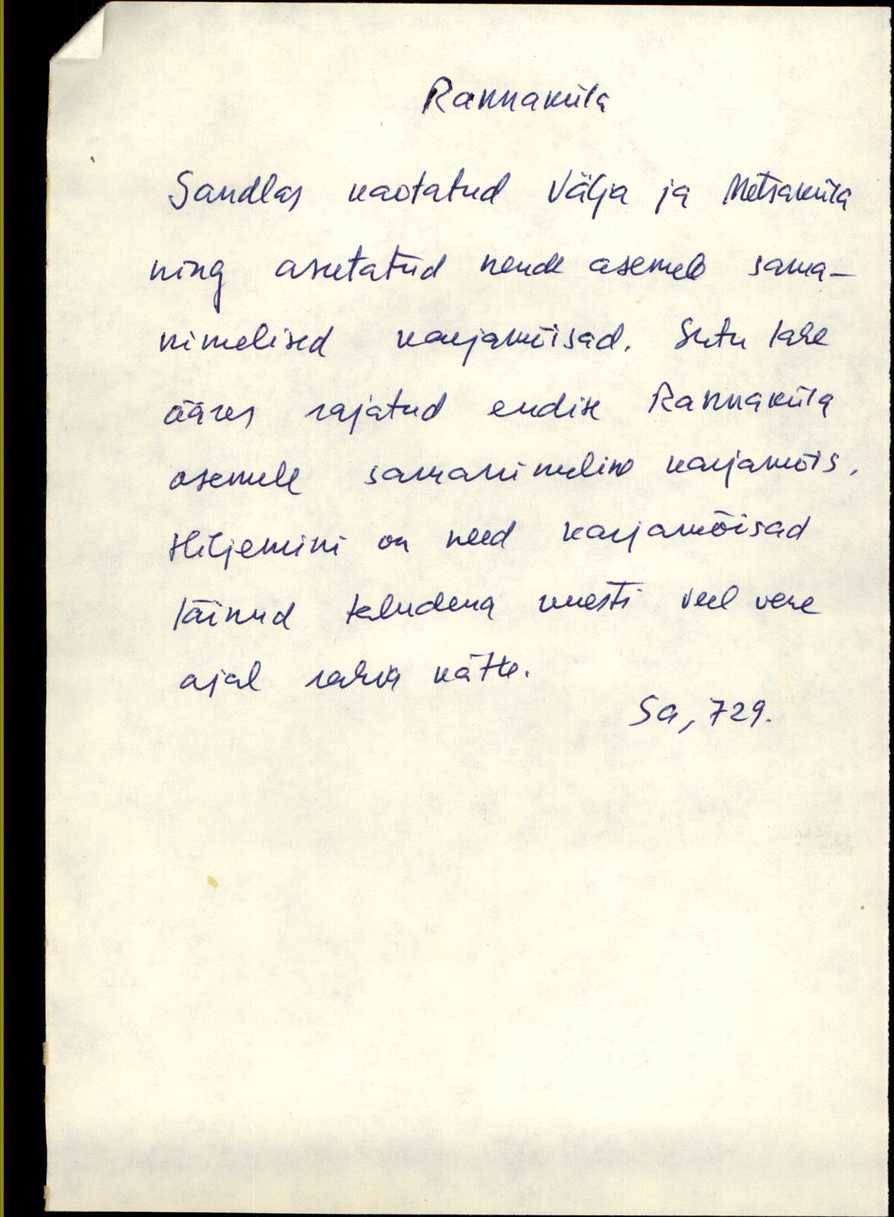 Rannaküla
Sandlas kaotatud Välja ja Metsaküla
ning asutatud nende asemele sama-
nimelised karjamõisad. Sutu lahe
ääres rajatud endise Rannaküla
asemele samanimeline karjamõis.
Hiljemini on need karjamõisad
läinud taludena uuesti veel vene
ajal rahva kätte.
Sa, 729.